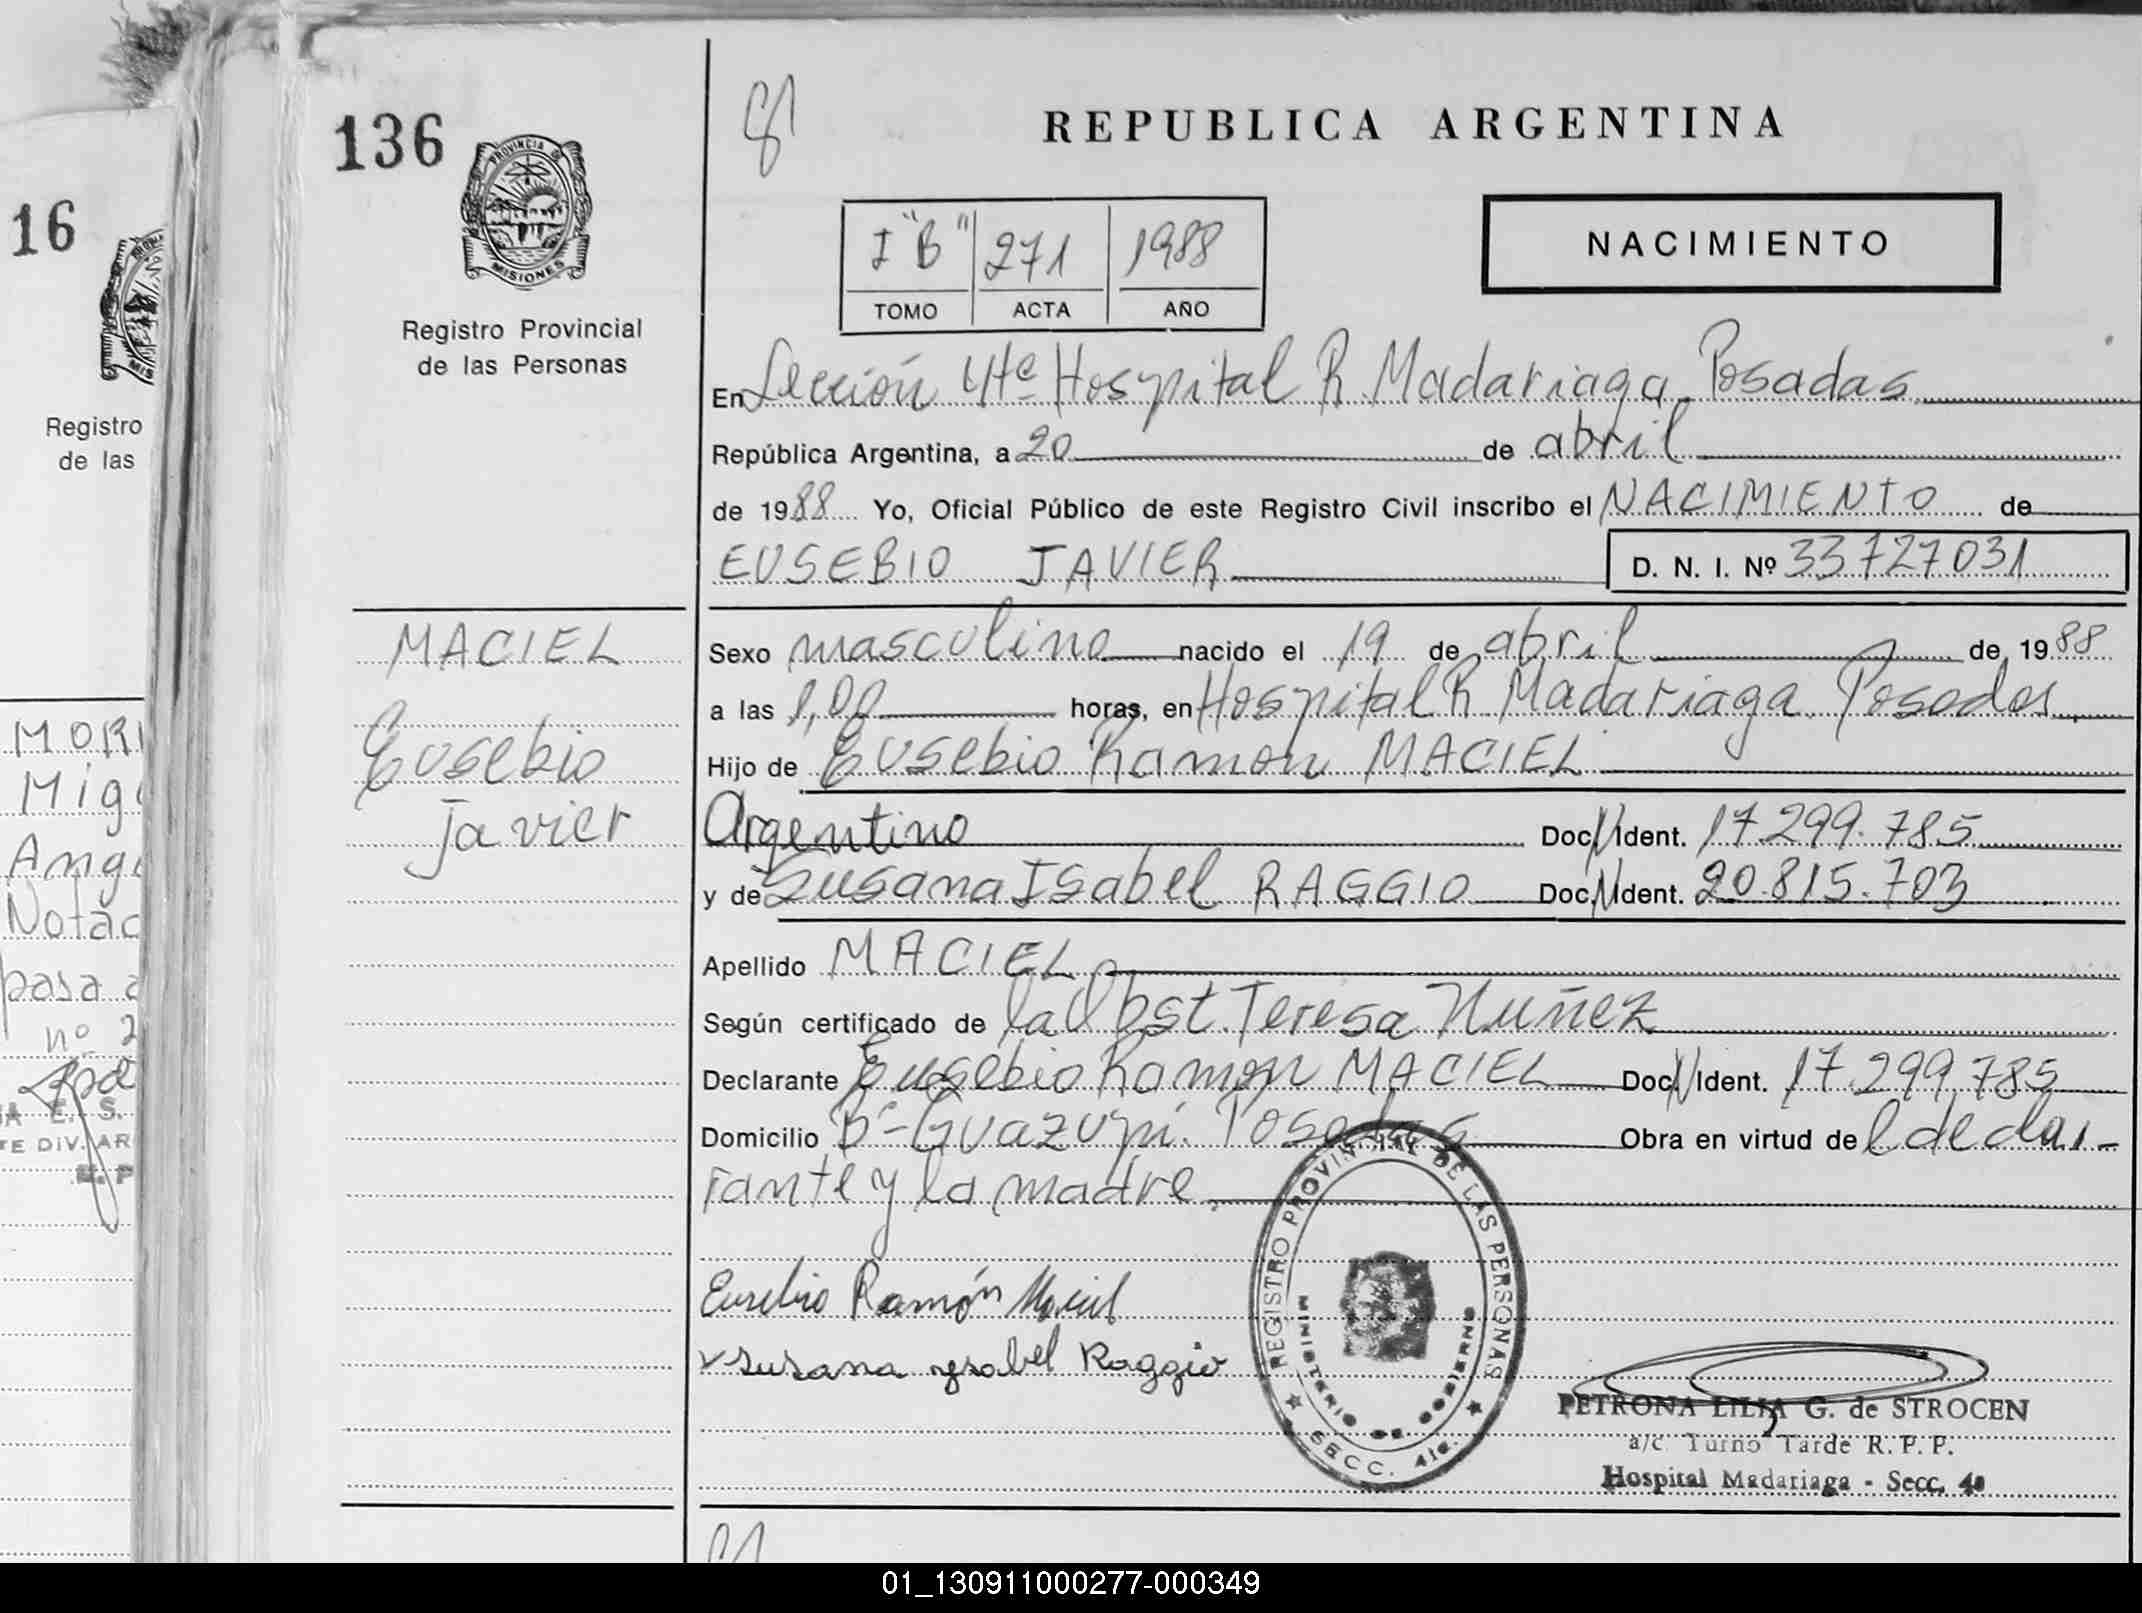 136
PROVINCIA DE
MISIONES
Registro Provincial
de las Personas
REPUBLICA ARGENTINA
I "B" 271 1988
TOMO ACTA AÑO
NACIMIENTO
En Sección 4ta Hospital R. Madariaga Posadas
República Argentina, a 20 de abril
de 1988 Yo, Oficial Público de este Registro Civil inscribo el NACIMIENTO de
EUSEBIO JAVIER D. N. I. Nº 33727031
MACIEL
Eusebio
Javier
Sexo masculino nacido el 19 de abril de 1988
a las 1,00 horas, en Hospital R Madariaga Posadas
Hijo de Eusebio Ramon MACIEL
Argentino Doc N Ident. 17.299.785
y de Susana Isabel RAGGIO Doc N Ident. 20.815.703
Apellido MACIEL
Según certificado de la Obst. Teresa Nuñez
Declarante Eusebio Ramon MACIEL Doc N Ident. 17.299.785
Domicilio Bº Guazupi. Posadas Obra en virtud de l decla-
rante y la madre
Eusebio Ramón Maciel
Susana Ysabel Raggio
REGISTRO PROVINCIAL DE LAS PERSONAS
MINISTERIO DE GOBIERNO
SECC. 4ta.
PETRONA LILIA G. de STROCEN
a/c Turno Tarde R. P. P.
Hospital Madariaga - Secc. 4a
16
MIS
Registro
de las
MORI
Mig
Ang
Nota
pasa a
nº 2
E. S.
TE DIV. AR
01_130911000277-000349